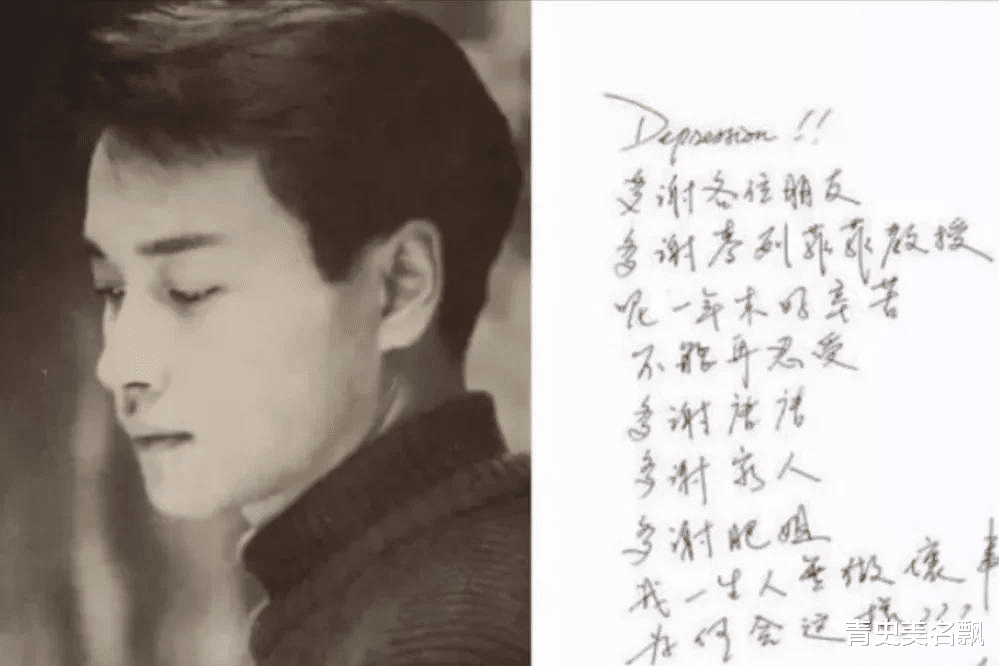 Depression!!
多谢各位朋友
多谢麦列菲菲教授
呢一年来好辛苦
不能再忍受
多谢唐唐
多谢家人
多谢肥姐
我一生人無做壞事
为何会这樣???
青史美名飘